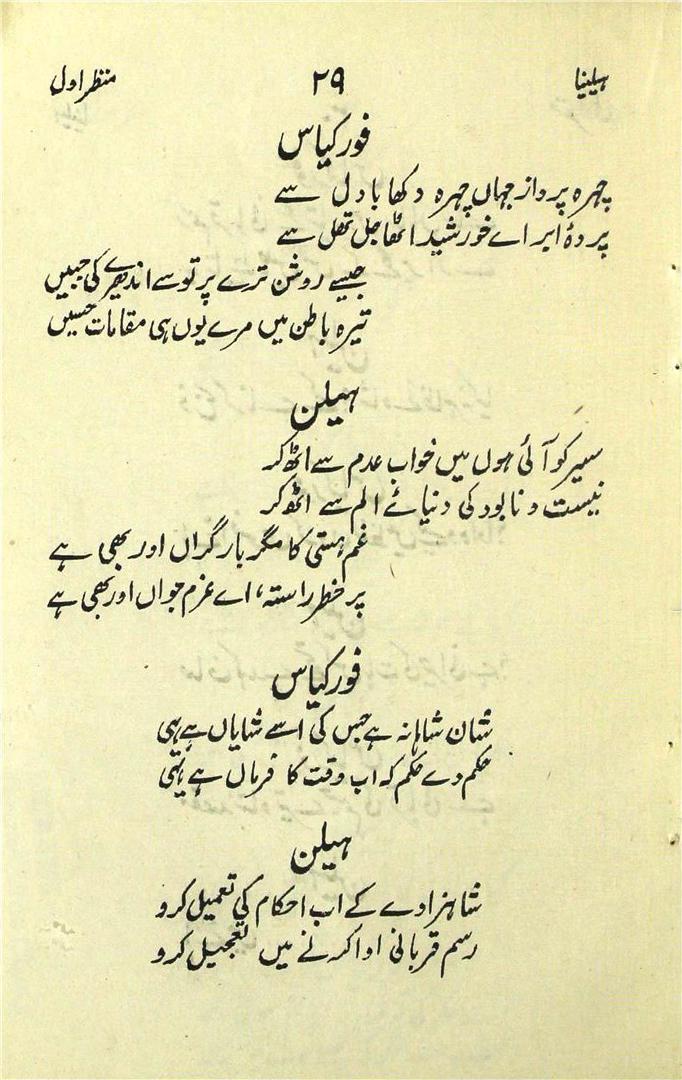 ہیلینا ۲۹ منظر اول
فورکیاس
چہرہ پرداز جہاں چہرہ دکھا بادل سے
پردۂ ابر اے خورشید اٹھا جل تھل سے
جیسے روشن ترے پرتو سے اندھیرے کی جبیں
تیرہ باطن میں مرے یوں ہی مقامات حسیں
ہیلن
سیر کو آئی ہوں میں خواب عدم سے اٹھ کر
نیست و نابود کی دنیائے الم سے اٹھ کر
غم ہستی کا مگر بار گراں اور بھی ہے
پر خطر راستہ، اے عزم جواں اور بھی ہے
فورکیاس
شان شاہانہ ہے جس کی اسے شایاں ہے یہی
حکم دے حکم کہ اب وقت کا فرماں ہے یہی
ہیلن
شاہزادے کے اب احکام کی تعمیل کرو
رسم قربانی ادا کرنے میں تعجیل کرو